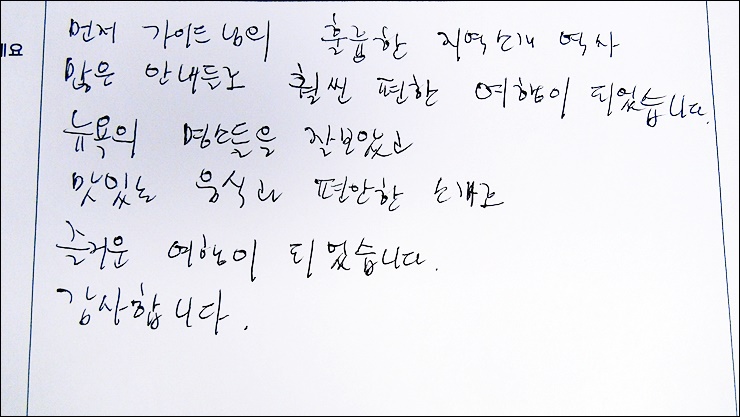 먼저 가이드님의 훌륭한 지역소개 역사
많은 안내들로 훨씬 편한 여행이 되었습니다.
뉴욕의 명소들을 잘보았고
맛있는 음식과 편안한 소개로
즐거운 여행이 되었습니다.
감사합니다.
세요